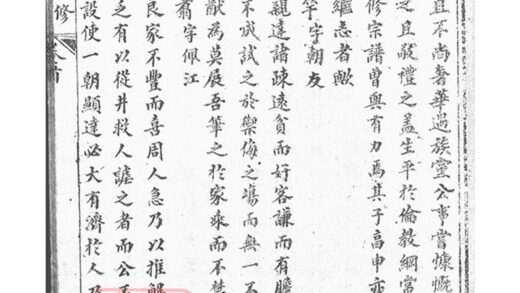 且不尚奢華遇族中公事嘗慷慨
之且敬禮之蓋生平於倫教綱常
修宗譜曾與有力焉其子高申亦
繼志者歟
竿字朝友
親達諸疎遠貧而好客謙而有膽
不咸試之於禦侮之場而無一不
猷為莫展吾筆之於家乘而不禁
翁字佩江
良家不豐而喜周人急乃以推解
乏有以從井救人謔之者而公不
設使一朝顯達必大有濟於人乃
修